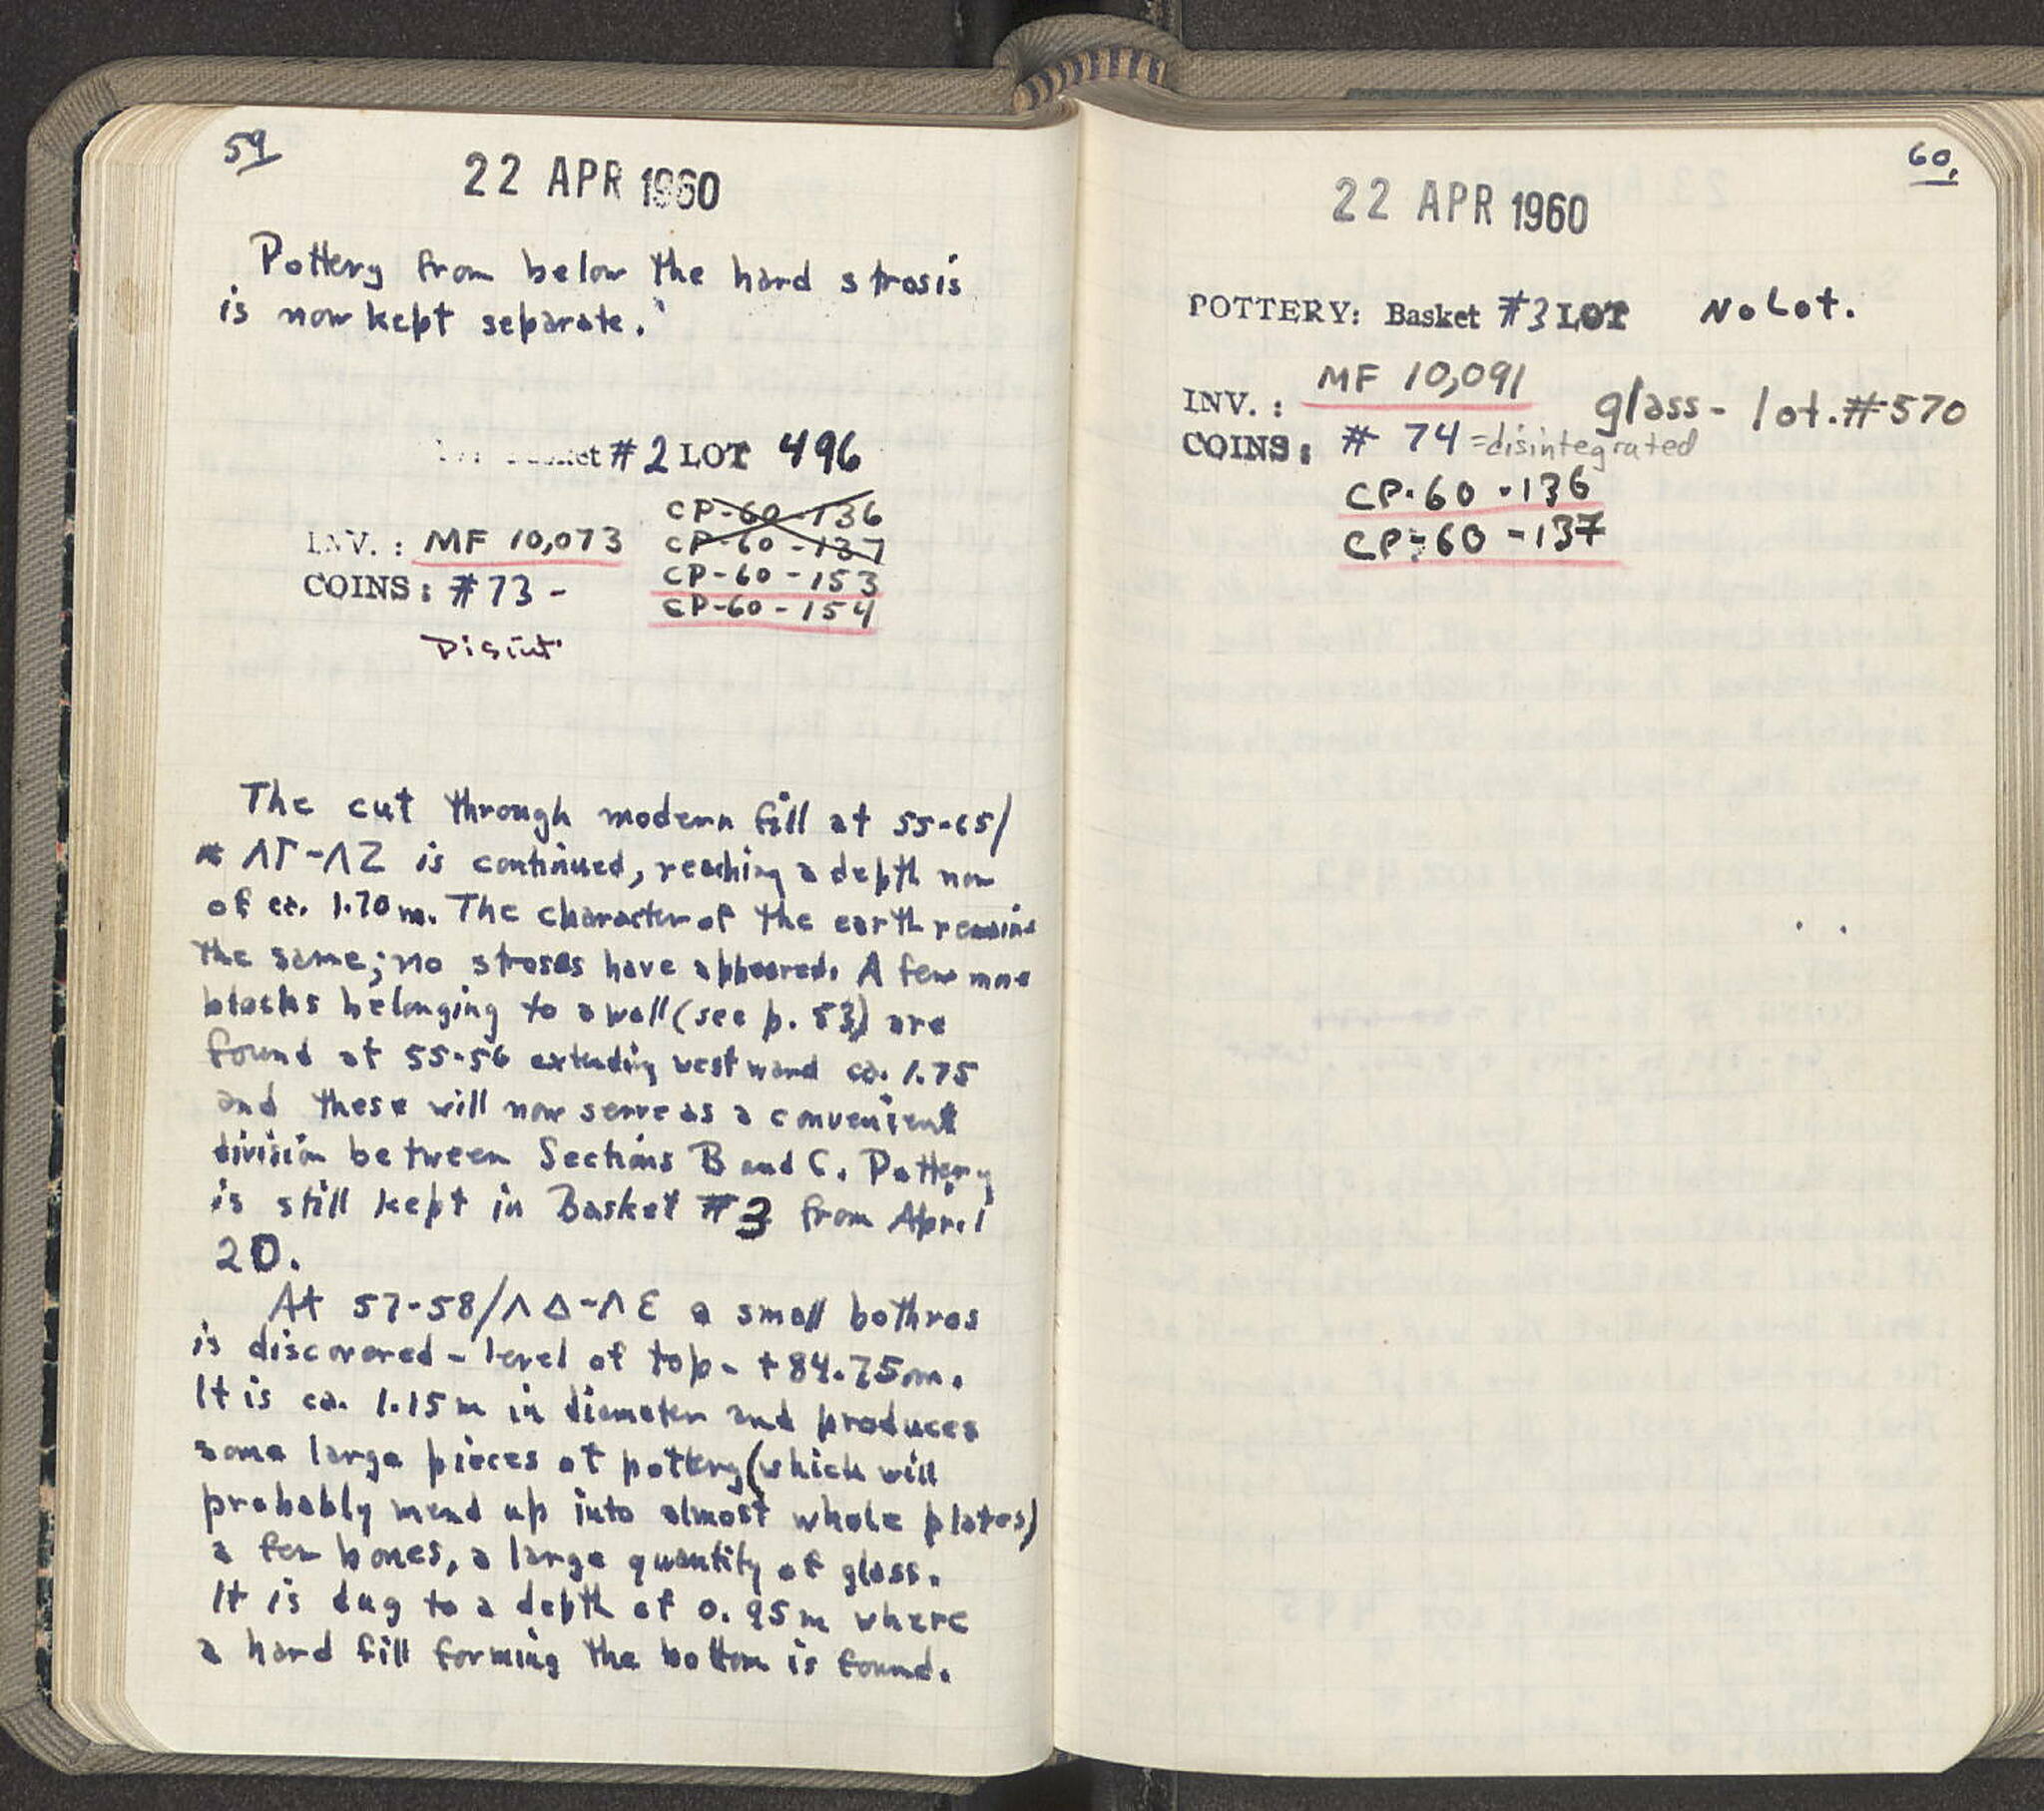 59
22 APR 1960
Pottery from below the hard strosis
is now kept separate.
#2 LOT 496
CP-60-136
CP-60-137
INV. : MF 10,073
CP-60-153
COINS: #73 -
CP-60-154
Disint.
The cut through modern fill at 55-65/
ΛΓ-ΛΖ is continued, reaching a depth now
of ca. 1.70 m. The character of the earth remains
the same; no stroses have appeared. A few more
blocks belonging to a wall (see p. 53) are
found at 55-56 extending westward ca. 1.75
and these will now serve as a convenient
division between Sections B and C. Pottery
is still kept in Basket #3 from April
20.
At 57-58/ΛΔ-ΛΕ a small bothros
is discovered - level of top - +84.75m.
It is ca. 1.15 m in diameter and produces
some large pieces of pottery (which will
probably mend up into almost whole plates)
a few bones, a large quantity of glass.
It is dug to a depth of 0.95m where
a hard fill forming the bottom is found.
60.
22 APR 1960
POTTERY: Basket #3 LOT No Lot.
INV. : MF 10,091 glass - lot. #570
COINS: # 74 = disintegrated
CP-60-136
CP-60-137